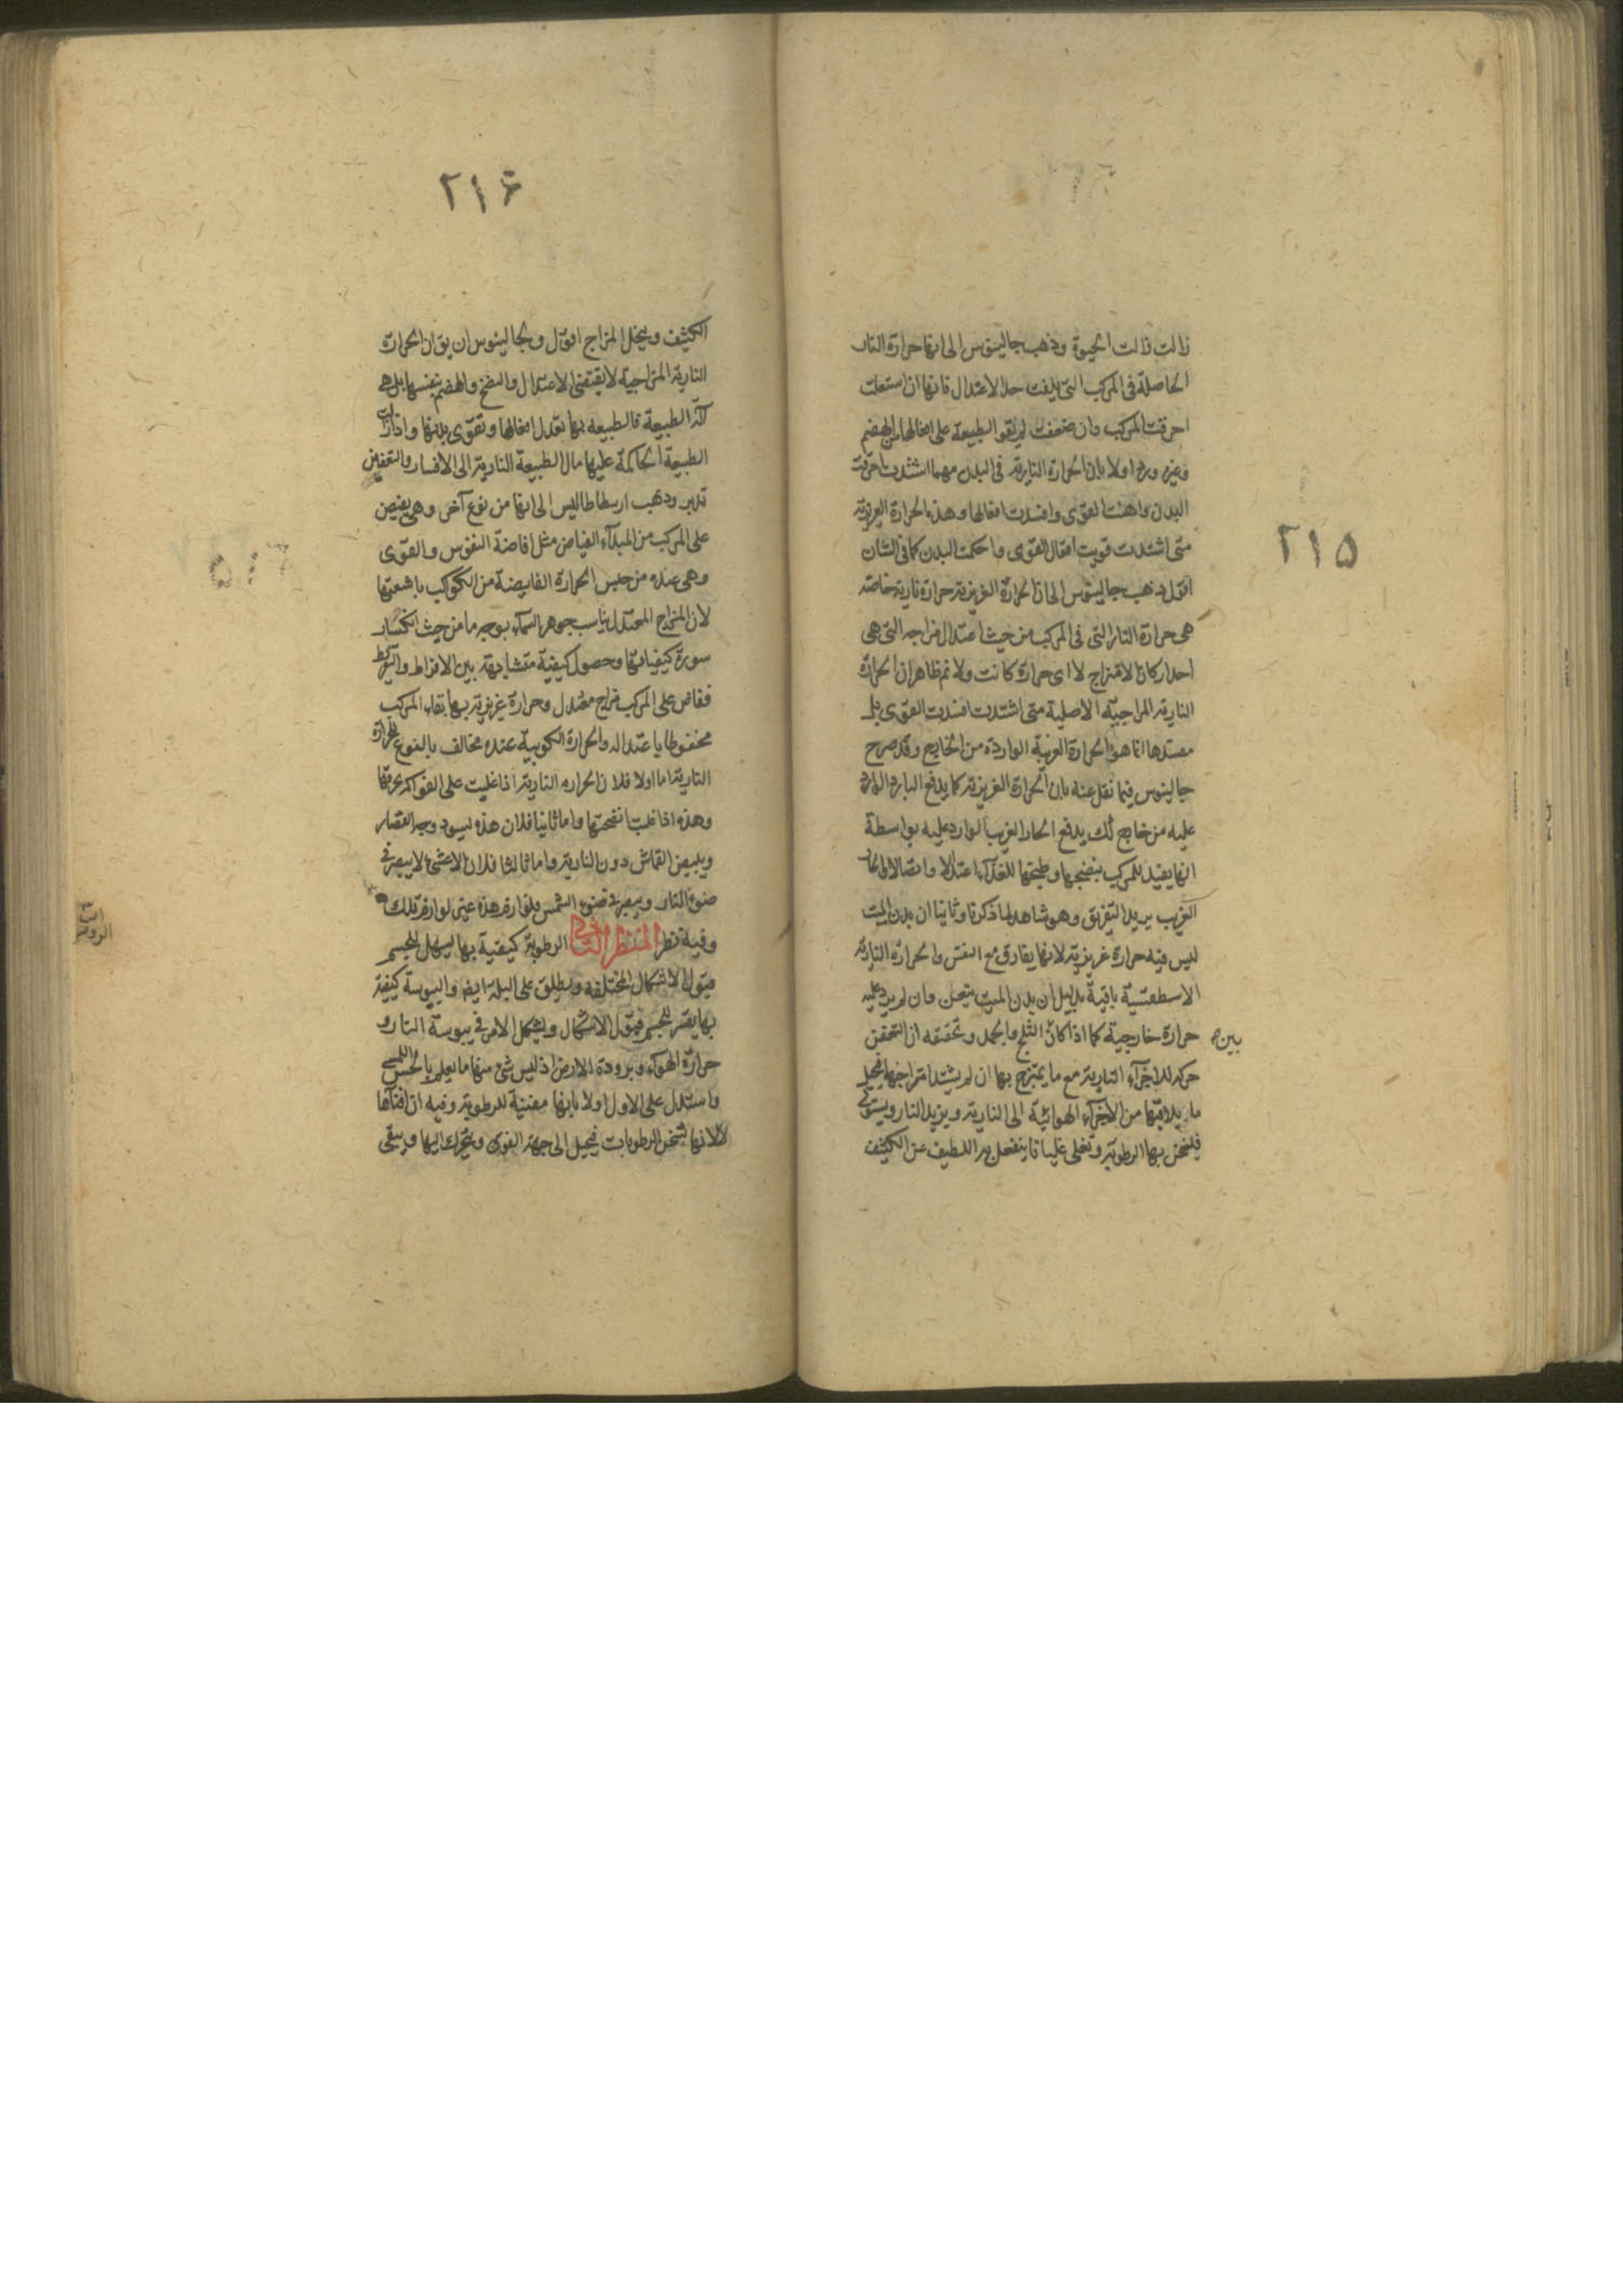 ٢١٥
زالت زالت الحيوة وذهب جالينوس الى انها حرارة النار
الحاصلة فى المركب التى بلغت حد الاعتدال فانها ان استعلت
احرقت المركب وان ضعفت لم يقو الطبيعة على افعالها من الهضم
وغيره ورد اولا بان الحرارة النارية فى البدن مهما اشتدت احرقت
البدن واهنت القوى وافسدت افعالها وهذه الحرارة الغريزية
متى اشتدت قويت افعال القوى واحكمت البدن كما فى الشان
اقول ذهب جالينوس الى ان الحرارة الغريزية حرارة نارية خاصة
هى حرارة النار التى فى المركب من حيث اعتدال مزاجه التى هى
احد اركان الامتزاج لا اى حرارة كانت ولا نم ظاهرا ان الحرارة
النارية المزاجية الاصلية متى اشتدت افسدت القوى بل
مفسدها انما هو الحرارة الغريبة الواردة من الخارج وقد صرح
جالينوس فيما نقل عنه بان الحرارة الغريزية كما يدفع البارد الوارد
عليه من خارج كك يدفع الحار الغريب الوارد عليه بواسطة
انها يفيد للمركب بنضجها وطبخها للغذآء اعتدالا واتصالا والحار
الغريب يريد التفريق وهو شاهد لما ذكرنا وثانيا ان بدن الميت
ليس فيه حرارة غريزية لانها يفارق مع النفس والحرارة النارية
الاسطقسية باقية بدليل ان بدن الميت يتعفن وان لم يرد عليه
حرارة خارجية كما اذا كان بين الثلج والجمد وتحقيقه ان التعفن
حركة للاجزآء النارية مع ما يمتزج بها ان لم يشتد امتزاجها فيحيل
ما يلاقيها من الاجزآء الهوائية الى النارية ويزيد النار ويستولى
فيسخن بها الرطوبة وتغلى غليانا ينفصل به اللطيف عن الكثيف
٢١۶
الكثيف وينحل المزاج اقول ولجالينوس ان يق ان الحرارة
النارية المزاجية لا يقتضى الاعتدال والنضج والهضم بنفسها بل هى
آلة الطبيعة فالطبيعة بها تعدل افعالها وتقوى بدنها واذا زالت
الطبيعة الحاكمة عليها مال الطبيعة النارية الى الافساد والتعفين
تدبر وذهب ارسطاطاليس الى انها من نوع آخر وهى يفيض
على المركب من المبدآء الفياض مثل افاضة النفوس والقوى
وهى عنده من جنس الحرارة الفايضة من الكوكب باشعتها
لان المزاج المعتدل يناسب جوهر السمآء بوجه ما من حيث انكسار
سورة كيفياتها وحصول كيفية متشابهة بين الافراط والتفريط
ففاض على المركب مزاج معتدل وحرارة غريزية بها بقاء المركب
محفوظا باعتداله والحرارة الكوكبية عنده مخالف بالنوع للحرارة
النارية اما اولا فلان الحرارة النارية اذا غلبت على الفواكه يحرقها
وهذه اذا غلبت انضجتها واما ثانيا فلان هذه ليسود وجه القصار
ويبيض القماش دون النارية واما ثالثا فلان الاعشى لا يبصر فى
ضوء النار ويبصر فى ضوء الشمس فلوازم هذه غير لوازم تلك
وفيه نظر المنظر الثانى الرطوبة كيفية بها يسهل للجسم
قبول الاشكال المختلفة ويطلق على البلة ايضا واليبوسة كيفية
بها يعسر للجسم قبول الاشكال ويشكل الامر فى يبوسة النار و
حرارة الهوآء وبرودة الارض اذ ليس شئ منها ما يعلم بالحس اللمسى
واستدل على الاول اولا بانها مفنية للرطوبة وفيه ان افنآها
لالانها تسخن الرطوبات فيحيل الى جهة الفوق ويتحرك اليها ويبقى